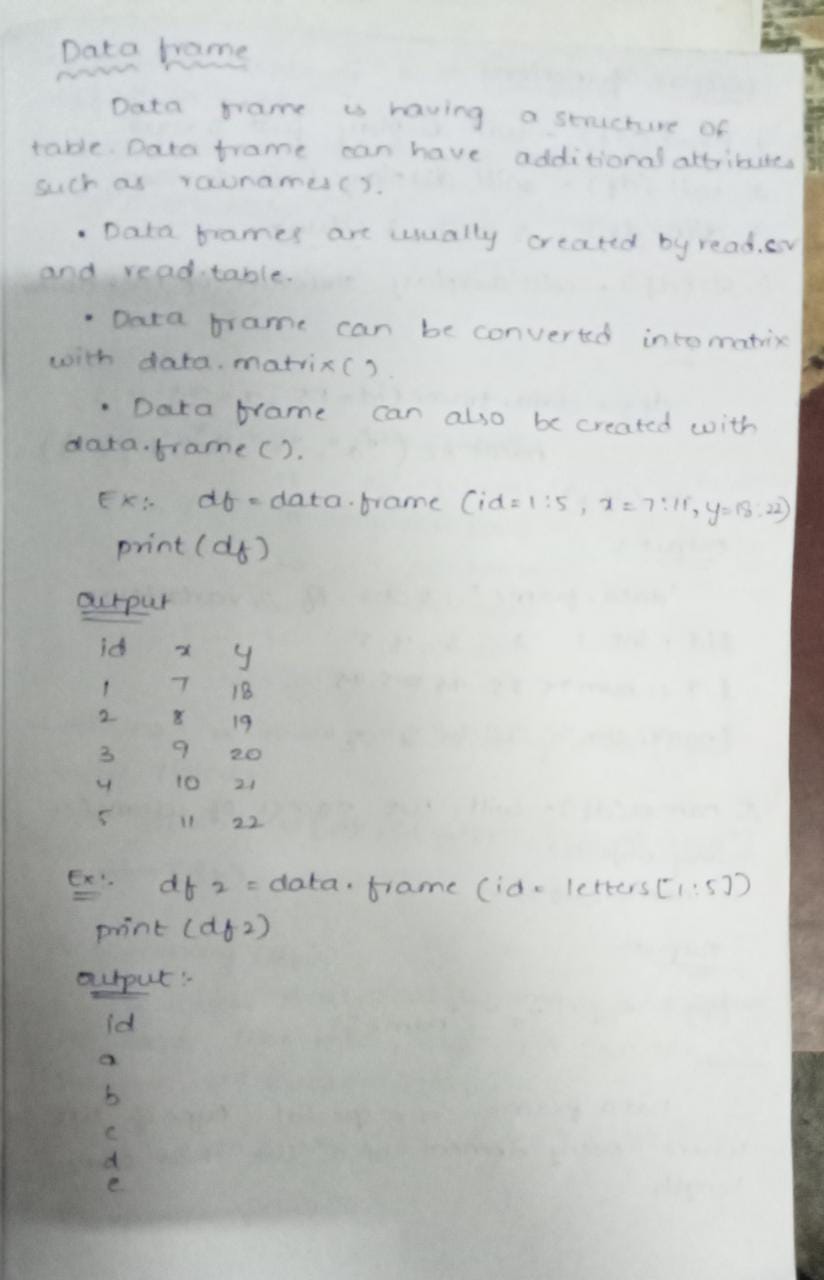 Data frame
Data frame is having a structure of
table. Data frame can have additional attributes
such as rawnames().
• Data frames are usually created by read.csv
and read.table.
• Data frame can be converted into matrix
with data.matrix().
• Data frame can also be created with
data.frame().
Ex:- df = data.frame (id=1:5, x=7:11, y=18:22)
print (df)
output
id x y
1 7 18
2 8 19
3 9 20
4 10 21
5 11 22
Ex:- df2 = data.frame (id= letters[1:5])
print (df2)
output:-
id
a
b
c
d
e